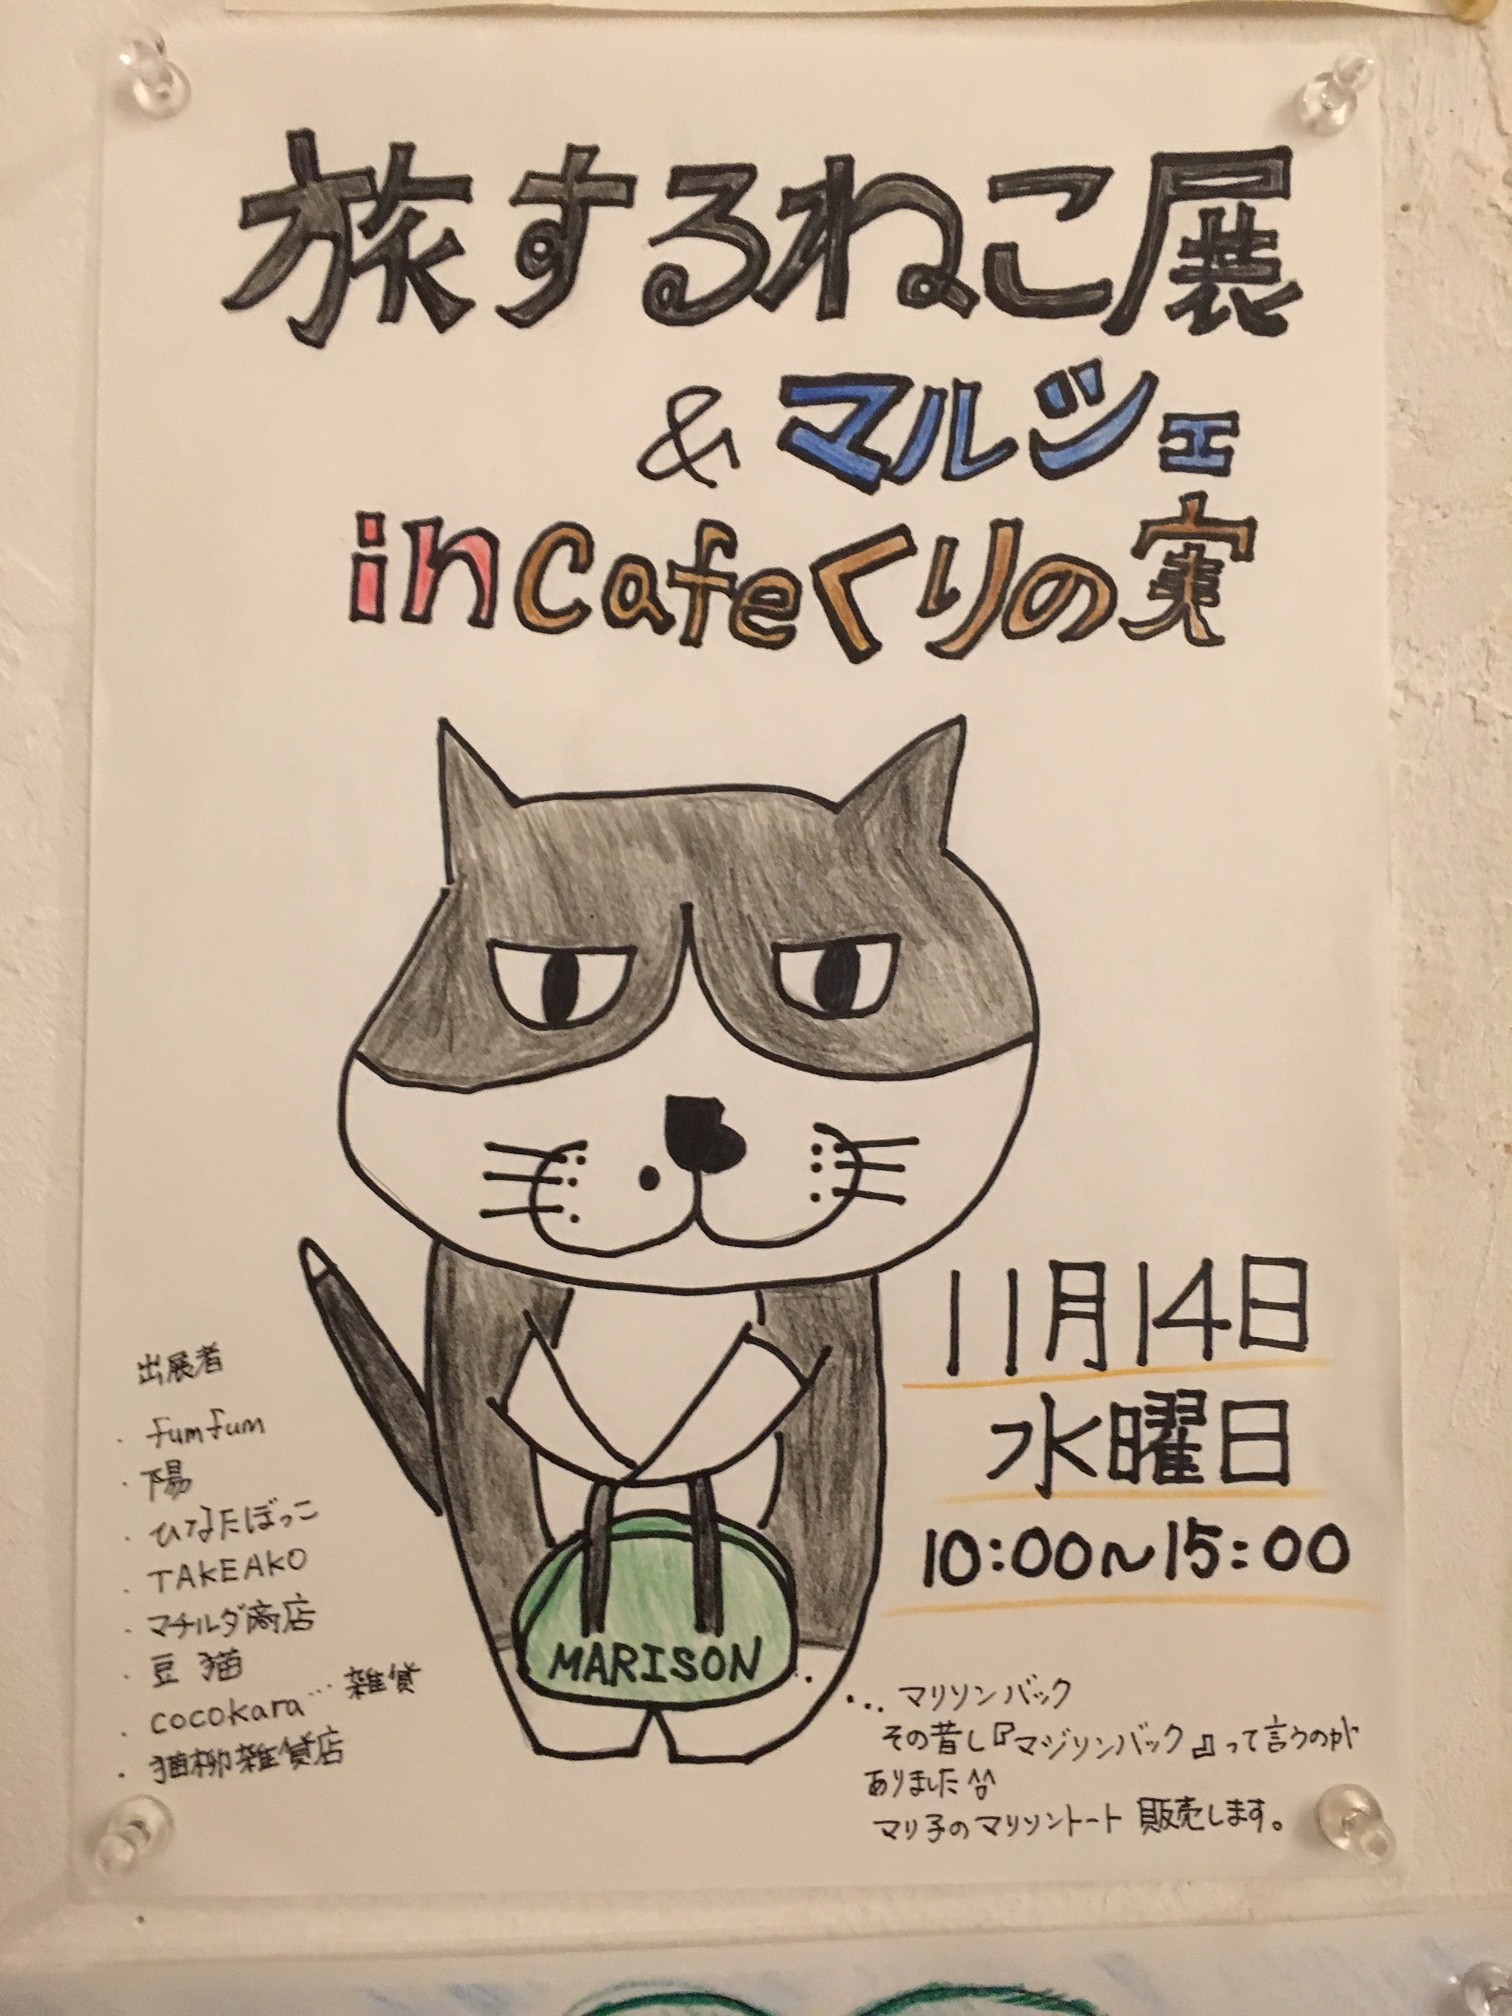 旅するねこ展
& マルシェ
in Cafeくりの実
11月14日
水曜日
10:00~15:00
出展者
・fumfum
・陽
・ひなたぼっこ
・TAKEAKO
・マチルダ商店
・豆猫
・cocokara…雑貨
・猫柳雑貨店
MARISON
…マリソンバック
その昔し『マジソンバック』って言うのが
ありました^^
マリ子のマリソントート 販売します。